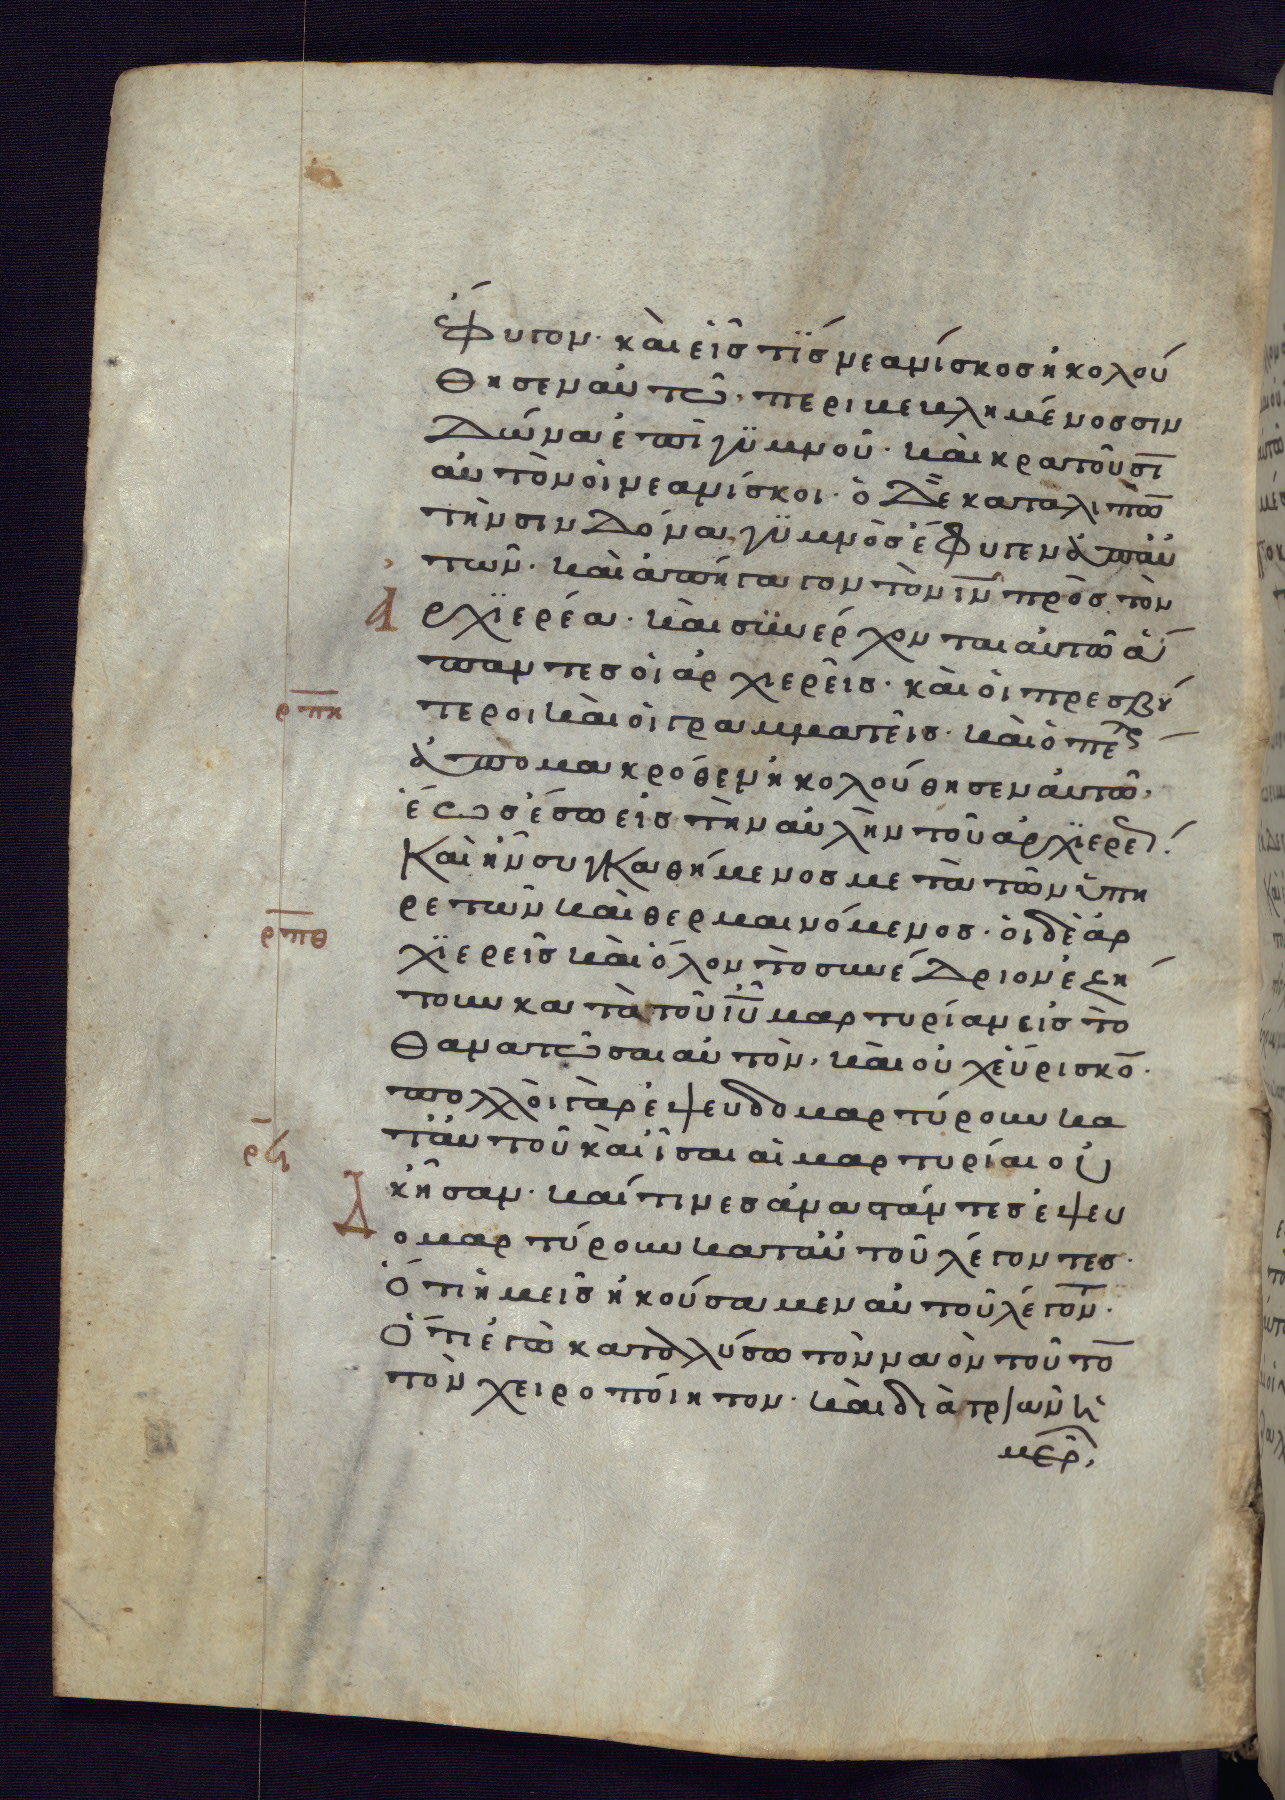 ἔφυγον· καὶ εἷς τίς νεανίσκος ἠκολού
θησεν αὐτῶ· περιβεβλημένος σιν
δώνα ἐπὶ γυμνοῦ· καὶ κρατοῦσῑ
αὐτὸν οἱ νεανίσκοι· ὁ δὲ καταλιπὼ
τὴν σινδόνα γυμνὸς ἔφυγεν ἀπ' αὐ
τῶν· καὶ ἀπήγαγον τὸν ῑν̄ πρὸς τὸν
ἀ
ρχιερέα· καὶ συνέρχονται αὐτῶ ἅ
παντες οἱ ἀρχιερεῖς· καὶ οἱ πρεσβύ
ρπη
τεροι καὶ οἱ γραμματεῖς· καὶ ὁ πέ
ἀπὸ μακρόθεν ἠκολούθησεν αὐτῶ·
ἕως ἔσω εἰς τὴν αὐλὴν τοῦ ἀρχιερέ·
Καὶ ἦν συγκαθήμενος μετὰ τῶν ὑπη
ρετῶν καὶ θερμαινόμενος· οἱ δὲ ἀρ
ρπθ
χιερεῖς καὶ ὅλον τὸ συνέδριον ἐζή
τουν κατὰ τοῦ ῑῡ μαρτυρίαν εἰς τὸ
θανατῶσαι αὐτὸν· καὶ οὐχ εὕρισκō·
πολλοὶ γὰρ ἐψευδομαρτύρουν κα
τ' αὐτοῦ καὶ ἴσαι αἱ μαρτυρίαι οὐ
ρϟ
κ ἦσαν· καί τινες ἀναστάντες ἐψευ
δ
ομαρτύρουν κατ' αὐτοῦ λέγοντες·
Ὅτι ἡμεῖς ἠκούσαμεν αὐτοῦ λέγον̄·
Ὅτι ἐγὼ καταλύσω τὸν ναὸν τοῦτō
τὸν χειροποίητον· καὶ διὰ τριῶν ἡ
μερ̄·